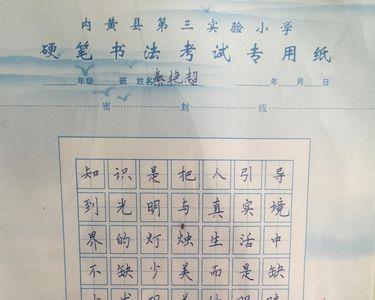 内黄县第三实验小学
硬笔书法考试专用纸
年级 班 姓名 秦艳超 年 月 日
密 封 线
知识是把人引导
到光明与真实境
界的灯烛生活中
不缺少美而是缺